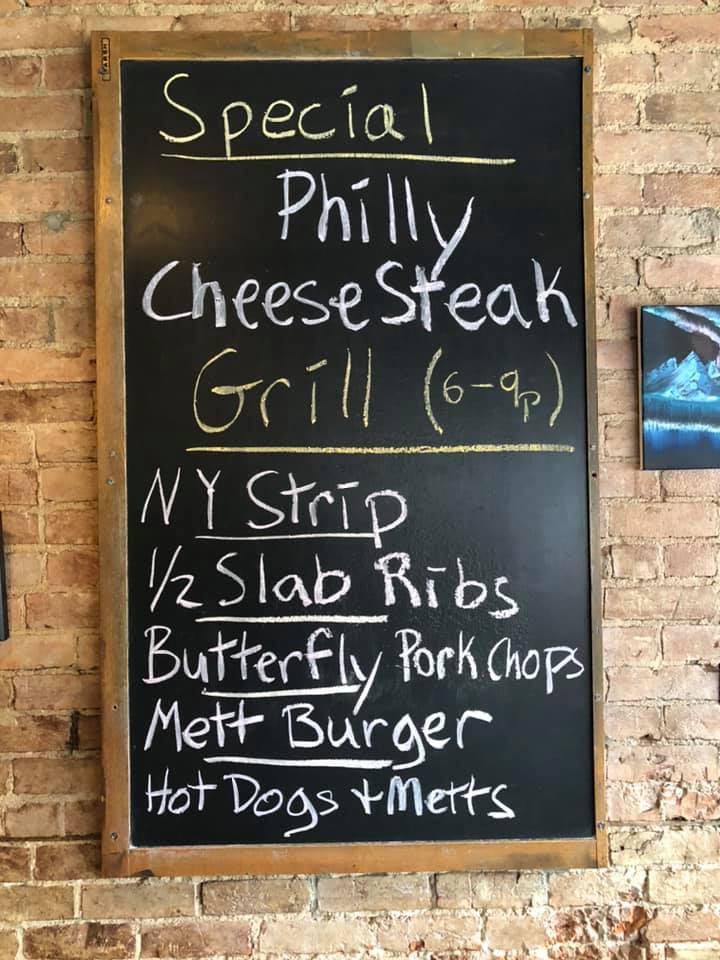 Special
Philly
Cheese Steak
Grill (6-9p)
NY Strip
1/2 Slab Ribs
Butterfly Pork Chops
Mett Burger
Hot Dogs + Metts